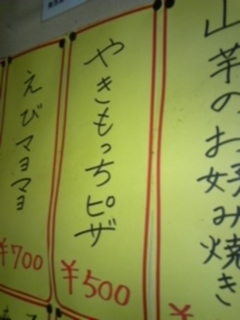 山芋のお好み焼き
¥
やきもっちピザ
¥500
えびマヨマヨ
¥700